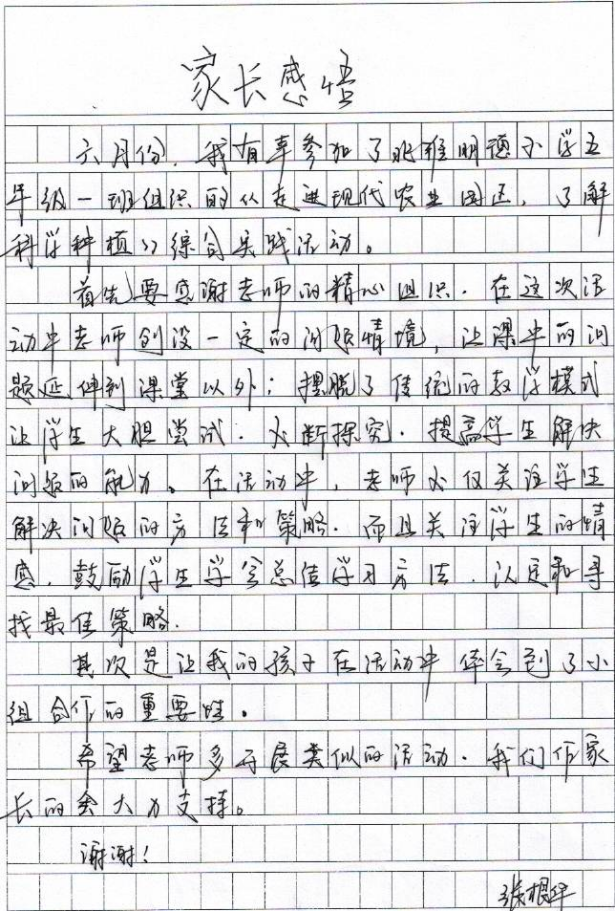 家长感悟
六月份，我有幸参加了兆雅明德小学五
年级一班组织的《走进现代农业园区，了解
科学种植》综合实践活动。
首先要感谢老师的精心组织。在这次活
动中老师创设一定的问题情境，让课中的问
题延伸到课堂以外；摆脱了传统的教学模式
让学生大胆尝试．不断探究．提高学生解决
问题的能力。在活动中，老师不仅关注学生
解决问题的方法和策略．而且关注学生的情
感．鼓励学生学会总结学习方法．认定和寻
找最佳策略．
其次是让我的孩子在活动中体会到了小
组合作的重要性。
希望老师多开展类似的活动．我们作家
长的会大力支持。
谢谢！
张根华